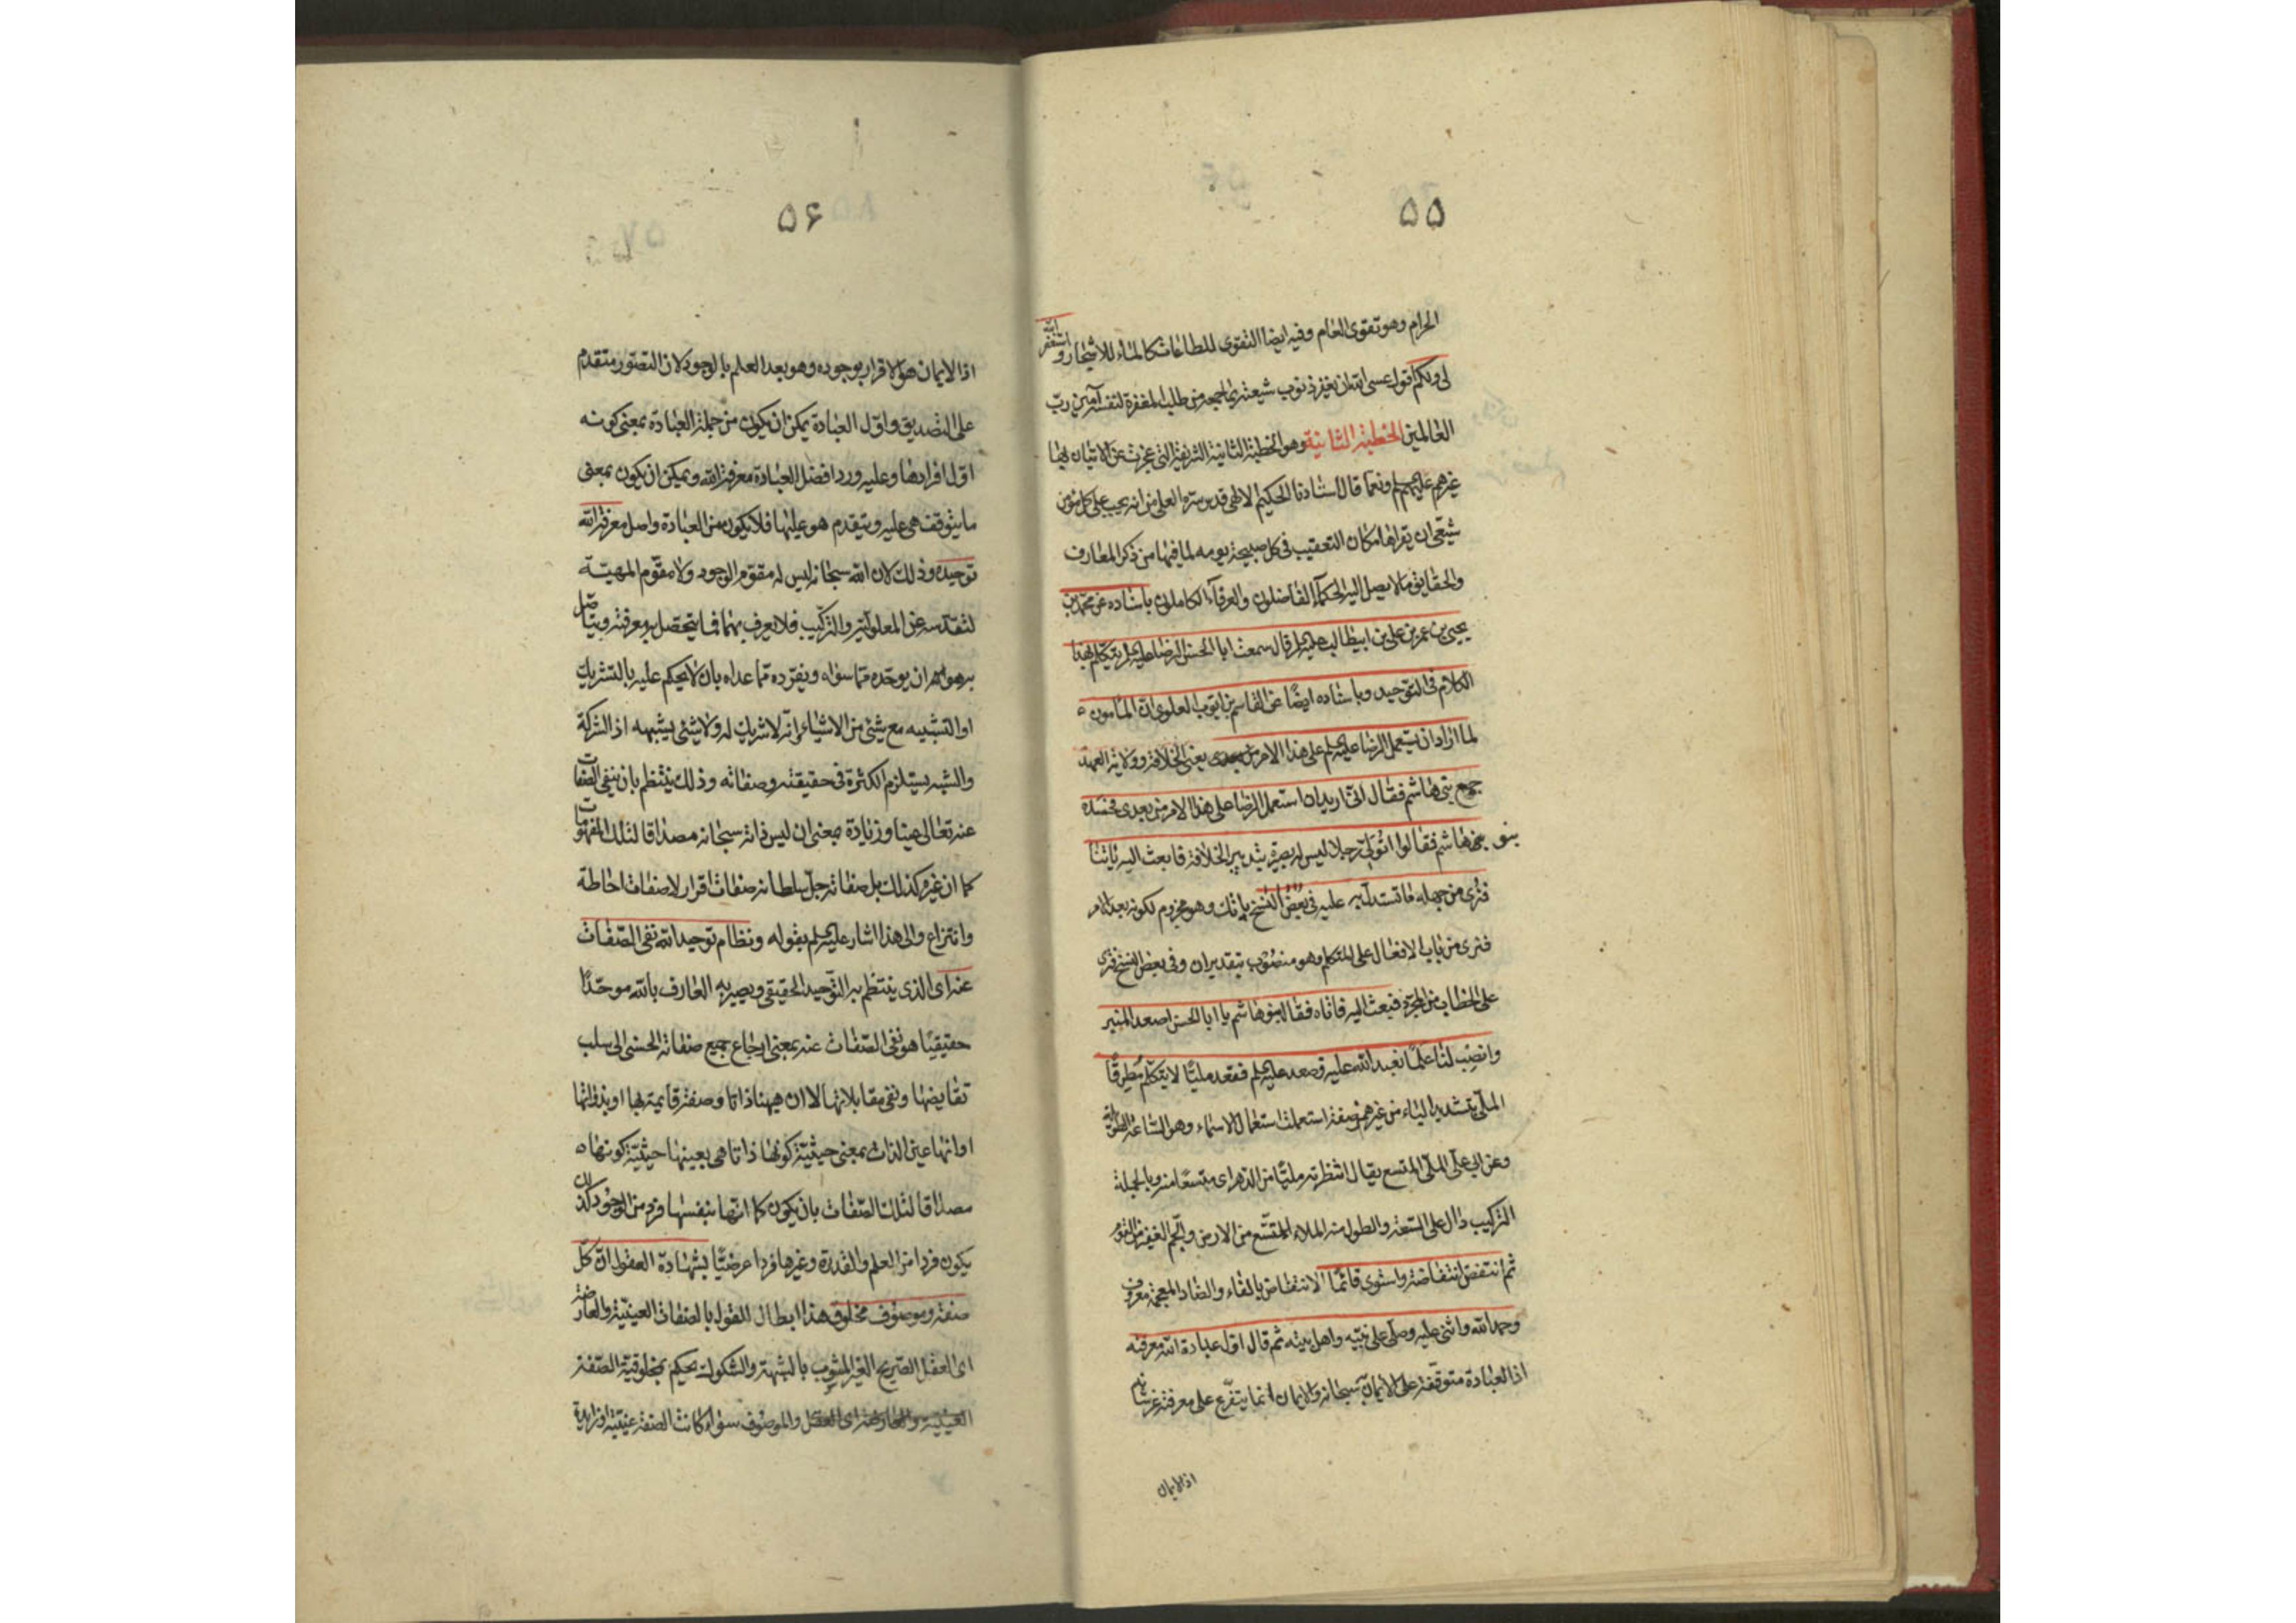 ۵۵
الحرام وهو تقوى العام وفيه ايضا التقوى للطاعات كالماء للاشجار واستغفر الله
لى ولكم اقول عسى الله ان يغفر ذنوب شيعته من طلب المغفرة لنفسه آمين رب
العالمين الخطبة الثانية وهو الخطبة الثانية الشريفة التى عجزت عن الاتيان بها
غيرهم عليهم السلم ونعما قال استادنا الحكيم الالهى قدس سره العلى من انه يجب على كل مؤمن
شيعى ان يقراها مكان التعقيب فى كل صبيحة يومه لما فيها من ذكر المعارف
والحقايق ما لا يصل اليه الحكماء الفاضلون والعرفاء الكاملون باسناده عن محمد بن
يحيى بن عمر بن على بن ابيطالب عليه السلم قال سمعت ابا الحسن الرضا عليه السلم يتكلم بهذا
الكلام فى التوحيد وباسناده ايضا عن القاسم بن ايوب العلوى ان المأمون
لما اراد ان يستعمل الرضا عليه السلم على هذا الامر يعنى الخلافة وولاية العهد
جمع بنى هاشم فقال انى اريد ان استعمل الرضا على هذا الامر من بعدى فحسده
بنو هاشم فقالوا اتولى رجلا ليس له بصيرة بتدبير الخلافة فابعث اليه ياتنا
فنرى من جهله ما تستدل به عليه فى بعض النسخ ياتك وهو مجزوم لكونه بعد الامر
فنرى من باب الافعال على المتكلم وهو منصوب بتقدير ان وفى بعض النسخ فترى
على الخطاب من المجرد فبعث اليه فاتاه فقال بنو هاشم يا ابا الحسن اصعد المنبر
وانصب لنا علما نعبد الله عليه فصعد عليه السلم فقعد مليا لا يتكلم مطرقا
الملى بتشديد الياء من غير همز صفة استعملت استعمال الاسماء وهو الساعة الطويلة
وعن ابى على الملى المتسع يقال انتظرته مليا من الدهر اى متسعا منه وبالجملة
التركيب دال على السعة والطول منه الملاء المتسع من الارض
ثم انتفض انتفاضة واستوى قائما الانتفاض بالفاء والضاد المعجمة معروف
وحمد الله واثنى عليه وصلى على نبيه واهل بيته ثم قال اول عبادة الله معرفته
اذ العبادة متوقفة على الايمان به سبحانه والايمان انما يتفرع على معرفته عز شانه
اذ الايمان
۵۶
اذ الايمان هو الاقرار بوجوده وهو بعد العلم بالوجود لان التصور متقدم
على التصديق واول العبادة يمكن ان يكون من جملة العبادة بمعنى كونه
اول افرادها وعليه ورد افضل العبادة معرفة الله ويمكن ان يكون بمعنى
ما يتوقف هى عليه ويتقدم هو عليها فلا يكون من العبادة واصل معرفة الله
توحيده وذلك لان الله سبحانه ليس له مقوم الوجود ولا مقوم المهية
لتقدسه عن المعلولية والتركيب فلا يعرف بهما فما يتحصل به معرفته ويتاصل
به هو ان يوحده مما سواه ويفرده مما عداه بان لا يحكم عليه بالتشريك
او التشبيه مع شئ من الاشياء وانه لا شريك له ولا شئ يشبهه اذ الشركة
والشبه يستلزم الكثرة فى حقيقته وصفاته وذلك ينتظم بان ينفى الصفات
عنه تعالى عينا وزيادة بمعنى ان ليس ذاته سبحانه مصداقا لتلك المفهومات
كما ان غيره كذلك بل صفاته جل سلطانه صفات اقرار لا صفات احاطة
وانتزاع والى هذا اشار عليه السلم بقوله ونظام توحيد الله نفى الصفات
عنه اى الذى ينتظم به التوحيد الحقيقى ويصير به العارف بالله موحدا
حقيقيا هو نفى الصفات عنه بمعنى ارجاع جميع صفاته الحسنى الى سلب
نقايضها ونفى مقابلاتها لا ان هيهنا ذاتا وصفة قايمة بها او بذواتها
او انها عين الذات بمعنى حيثية كونها ذاتا هى بعينها حيثية كونها
مصداقا لتلك الصفات بان يكون كما انها بنفسها فرد من الوجود كذلك
يكون فردا من العلم والقدرة وغيرها فردا عرضيا بشهادة العقول ان كل
صفة وموصوف مخلوق هذا ابطال للقول بالصفات العينية والعارضة
اى العقل الصريح الغير المشوب بالشبهة والشكوك يحكم بمخلوقية الصفة
والموصوف سواء كانت الصفة عينية او زايدة